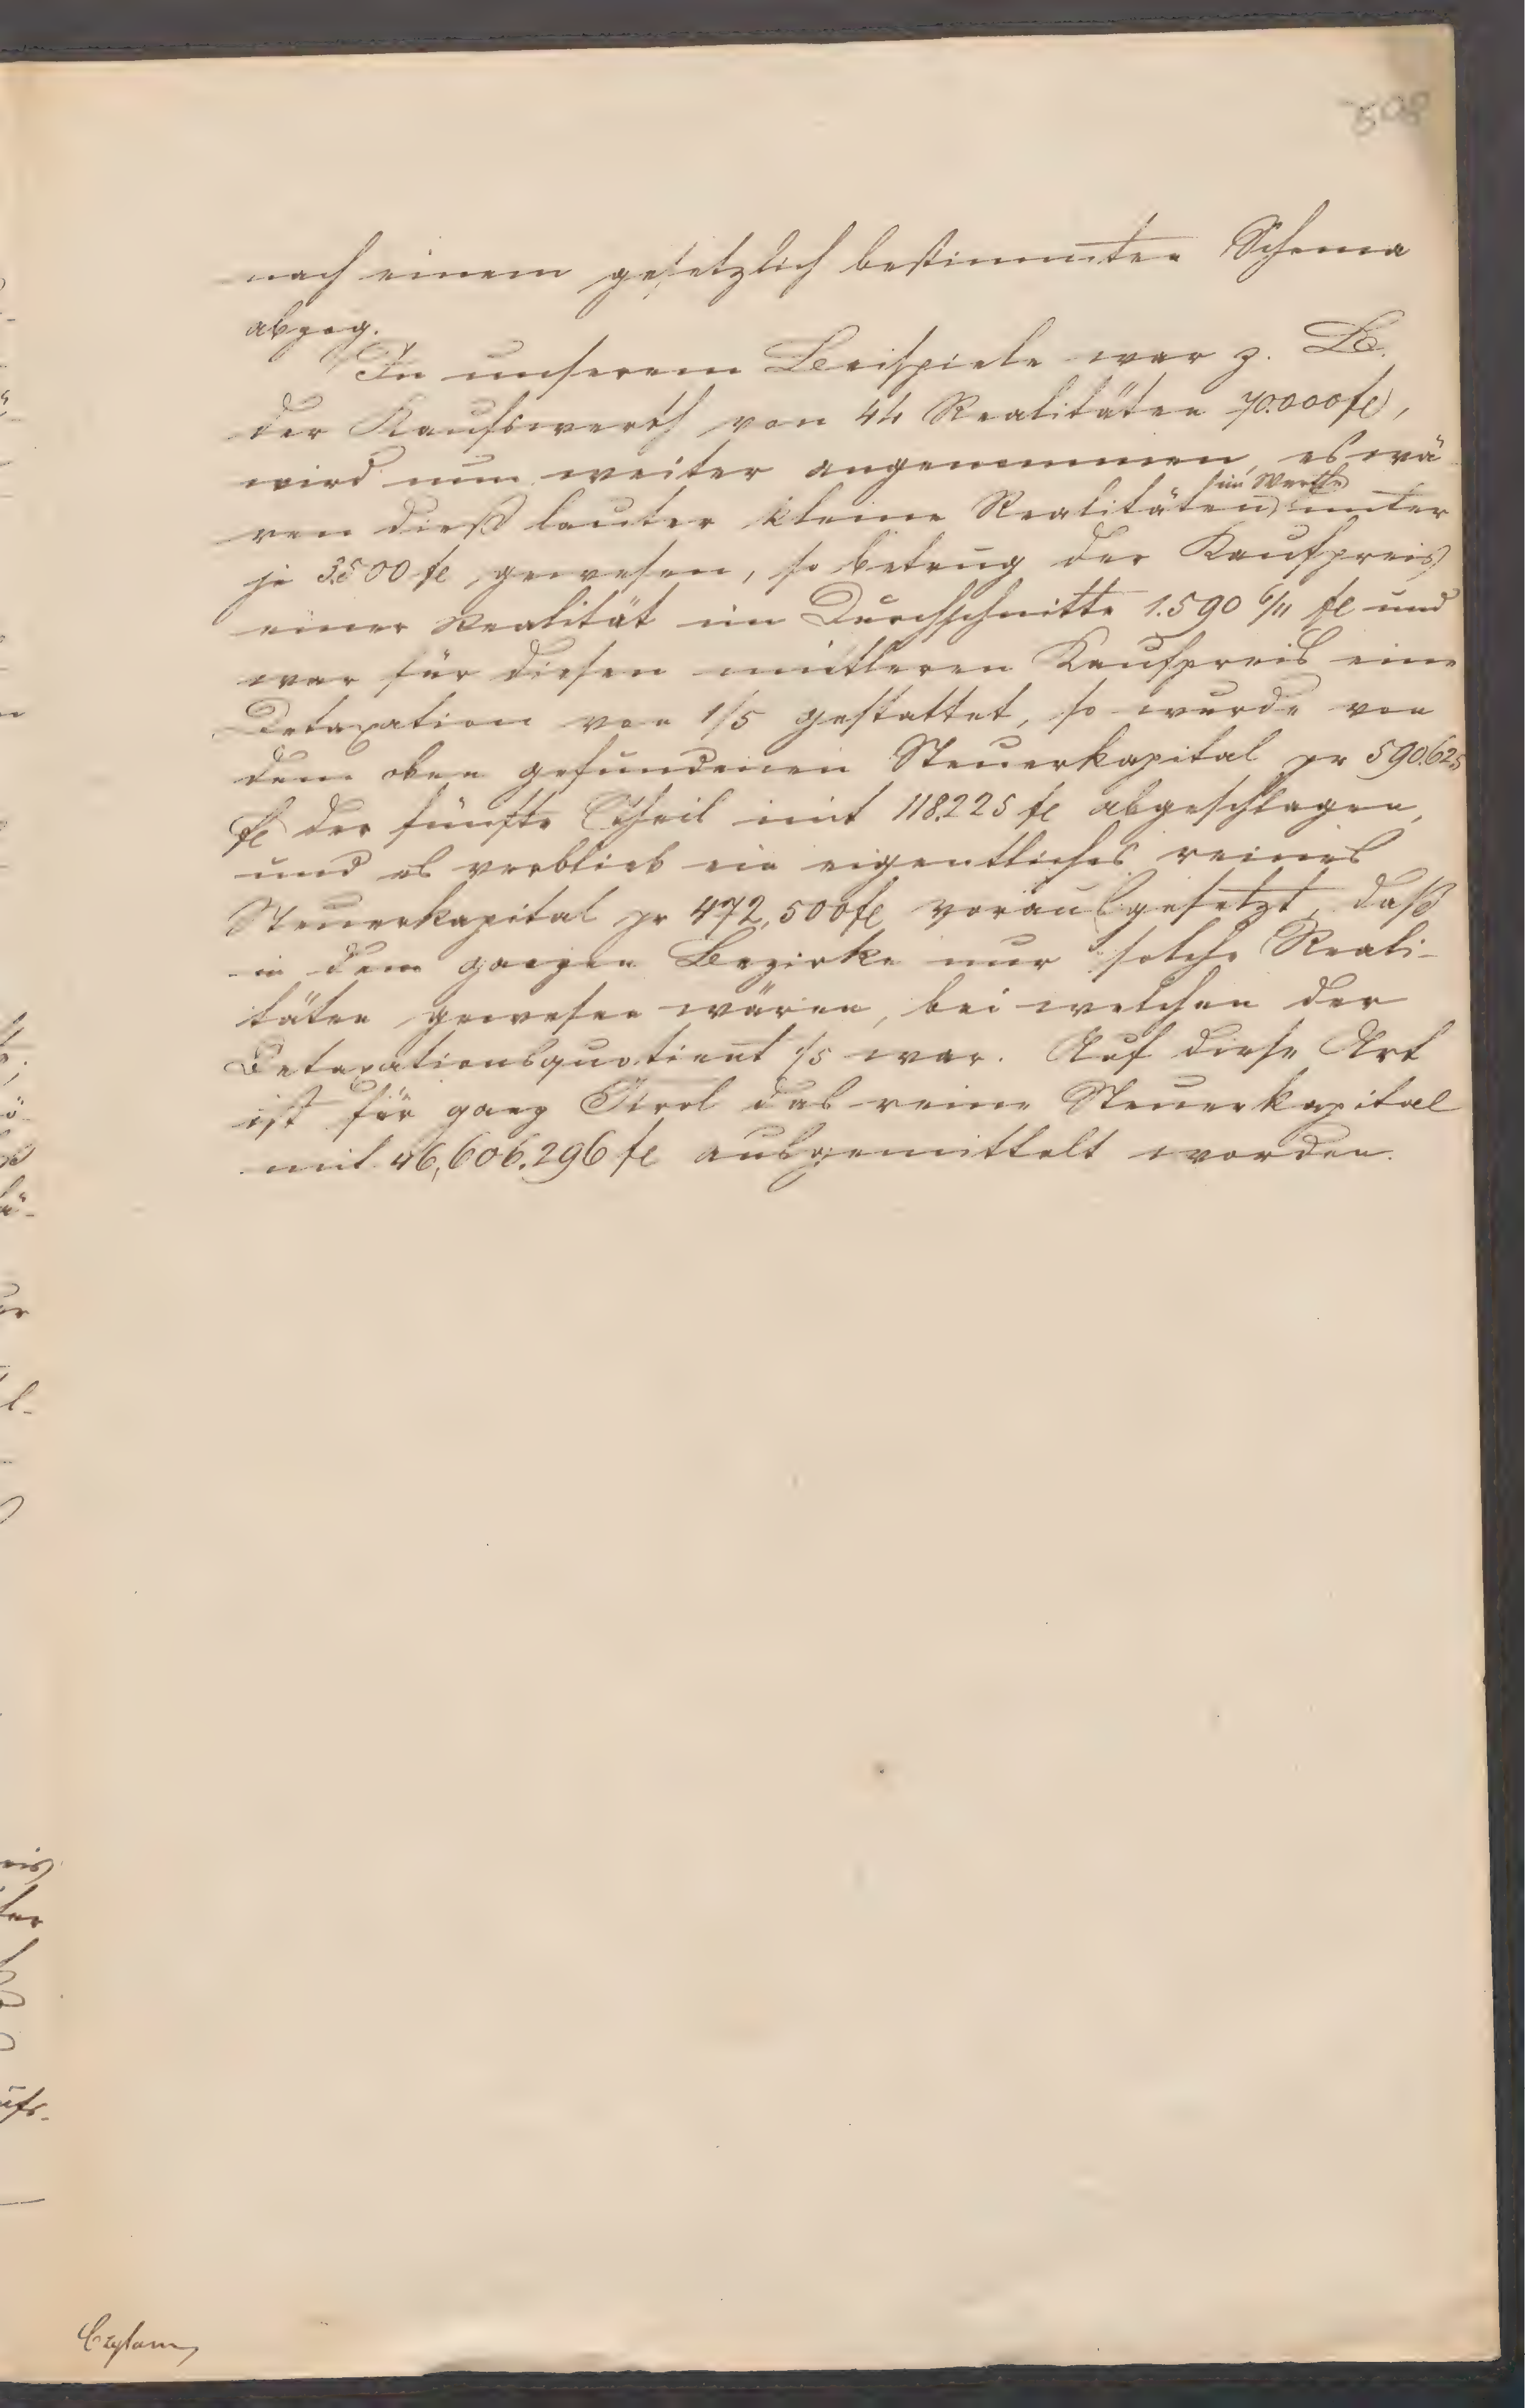 508
nach einem gesetzlich bestimmten Schema
abzog.
In unserem Beispiele war z. B.
der Kaufswerth von 44 Realitäten 70.000 fl,
wird nun weiter angenommen, es wä
ren dieß lauter kleine Realitäten im Werthe unter
je 3.500 fl gewesen, so betrug der Kaufpreis
einer Realität im Durchschnitte 1.590 6/11 fl und
war für diesen mittleren Kaufpreis eine
Detaxation von 1/5 gestattet, so wurde von
dem oben gefundenen Steuerkapital pr 590.625
fl der fünfte Theil mit 118.225 fl abgeschlagen,
und es verblieb ein eigentliches reines
Steuerkapital pr 472,500 fl vorausgesetzt, daß
in dem ganzen Bezirke nur solche Reali-
täten gewesen wären, bei welchen der
Detaxationsquotient 1/5 war. Auf diese Art
ist für ganz Tirol das reine Steuerkapital
mit 46,606.296 fl ausgemittelt worden.